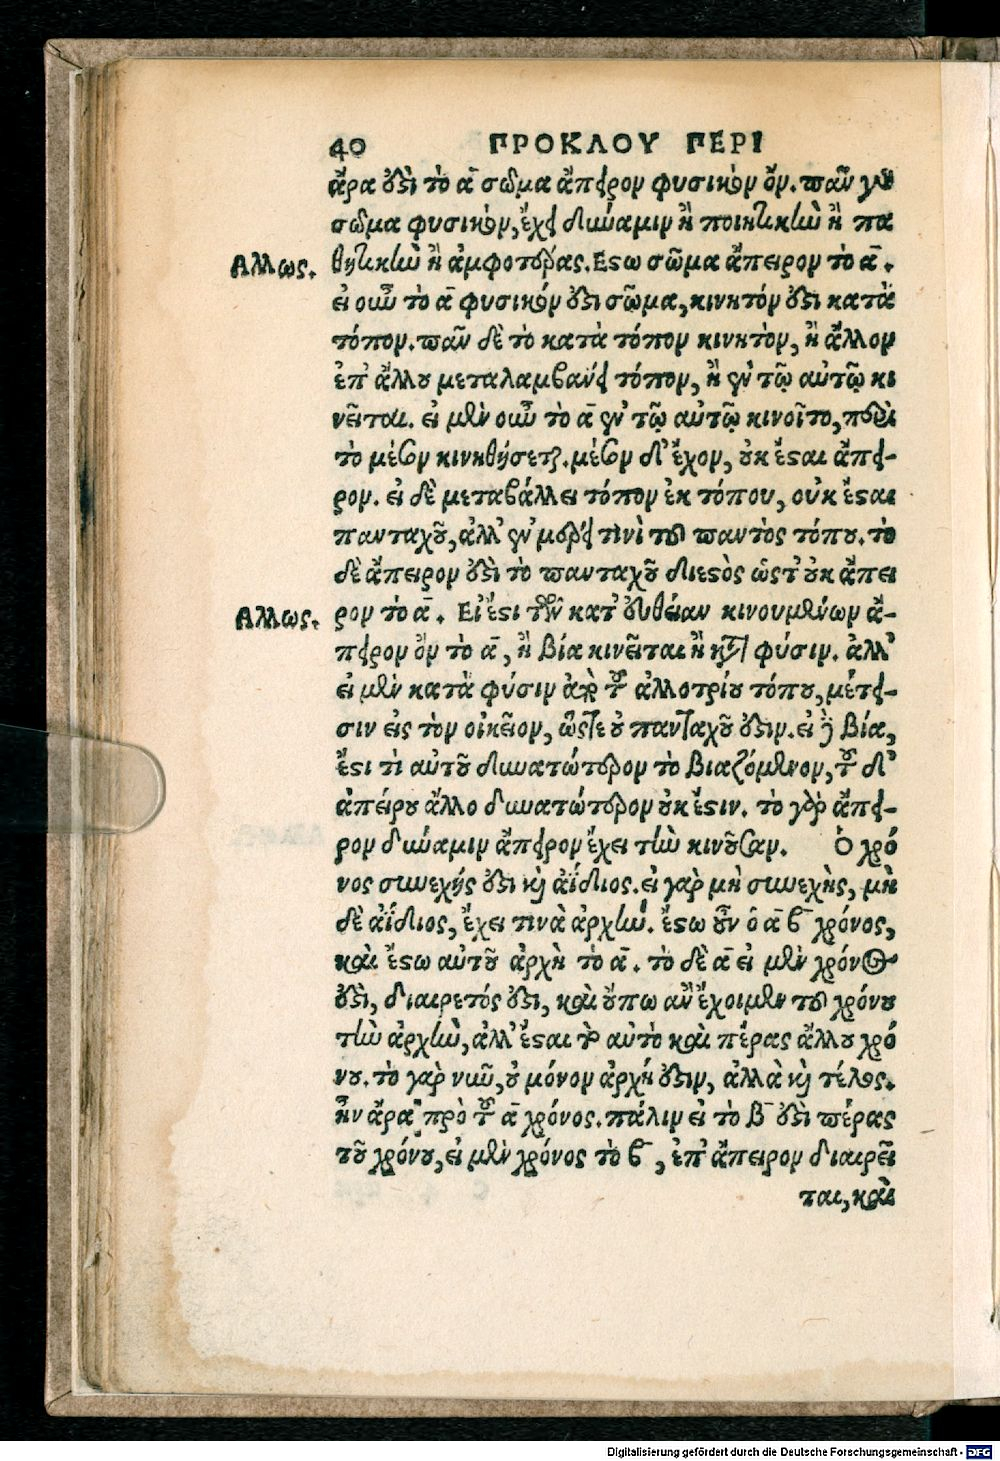 40 ΠΡΟΚΛΟΥ ΠΕΡΙ
ἄρα ἐστὶ τὸ α̅ σῶμα ἄπειρον φυσικὸν ὄν. πᾶν γὰρ
σῶμα φυσικὸν, ἔχει δύναμιν ἢ ποιητικὴν ἢ πα
Αλλως. θητικὴν ἢ ἀμφοτέρας. Εστω σῶμα ἄπειρον τὸ α̅.
εἰ οὖν τὸ α̅ φυσικόν ἐστι σῶμα, κινητόν ἐστι κατὰ
τόπον. πᾶν δὲ τὸ κατὰ τόπον κινητὸν, ἢ ἄλλον
ἐπ' ἄλλου μεταλαμβάνει τόπον, ἢ ἐν τῷ αὐτῷ κι
νεῖται. εἰ μὲν οὖν τὸ α̅ ἐν τῷ αὐτῷ κινοῖτο, περὶ
τὸ μέσον κινηθήσεται. μέσον δ' ἔχον, οὐκ ἔσται ἄπει-
ρον. εἰ δὲ μεταβάλλει τόπον ἐκ τόπου, οὐκ ἔσται
πανταχοῦ, ἀλλ' ἐν μέρει τινὶ τοῦ παντὸς τόπου. τὸ
δὲ ἄπειρον ἐστὶ τὸ πανταχοῦ διεστὸς ὥστ' οὐκ ἄπει
Αλλως. ρον τὸ α̅. Εἰ ἔστι τῶν κατ' εὐθεῖαν κινουμένων ἄ-
πειρον ὂν τὸ α̅, ἢ βία κινεῖται ἢ κατὰ φύσιν. ἀλλ'
εἰ μὲν κατὰ φύσιν ἀπὸ τοῦ ἀλλοτρίου τόπου, μέτει-
σιν εἰς τὸν οἰκεῖον, ὥστε οὐ πανταχοῦ ἐστιν. εἰ δὲ βία,
ἔστι τὶ αὐτοῦ δυνατώτερον τὸ βιαζόμενον, τοῦ δ'
ἀπείρου ἄλλο δυνατώτερον οὐκ ἔστιν. τὸ γὰρ ἄπει-
ρον δύναμιν ἄπειρον ἔχει τὴν κινοῦσαν. Ὁ χρό
νος συνεχής ἐστι καὶ ἀΐδιος. εἰ γὰρ μὴ συνεχὴς, μη
δὲ ἀΐδιος, ἔχει τινὰ ἀρχήν. ἔστω οὖν ὁ α̅ β̅ χρόνος,
καὶ ἔστω αὐτοῦ ἀρχὴ τὸ α̅. τὸ δὲ α̅ εἰ μὲν χρόνος
ἐστὶ, διαιρετός ἐστι, καὶ οὔπω ἂν ἔχοιμεν τοῦ χρόνου
τὴν ἀρχὴν, ἀλλ' ἔσται τὸ αὐτὸ καὶ πέρας ἄλλου χρό
νου. τὸ γὰρ νῦν, οὐ μόνον ἀρχή ἐστιν, ἀλλὰ καὶ τέλος.
ἦν ἄρα πρὸ τοῦ α̅ χρόνος. πάλιν εἰ τὸ β̅ ἐστὶ πέρας
τοῦ χρόνου, εἰ μὲν χρόνος τὸ β̅, ἐπ' ἄπειρον διαιρεῖ
ται, καὶ
Digitalisierung gefördert durch die Deutsche Forschungsgemeinschaft - DFG